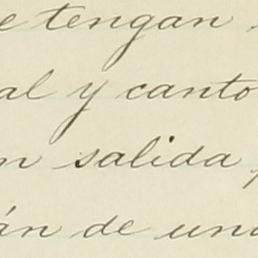 e tengan
al y canto
n salida
án de una